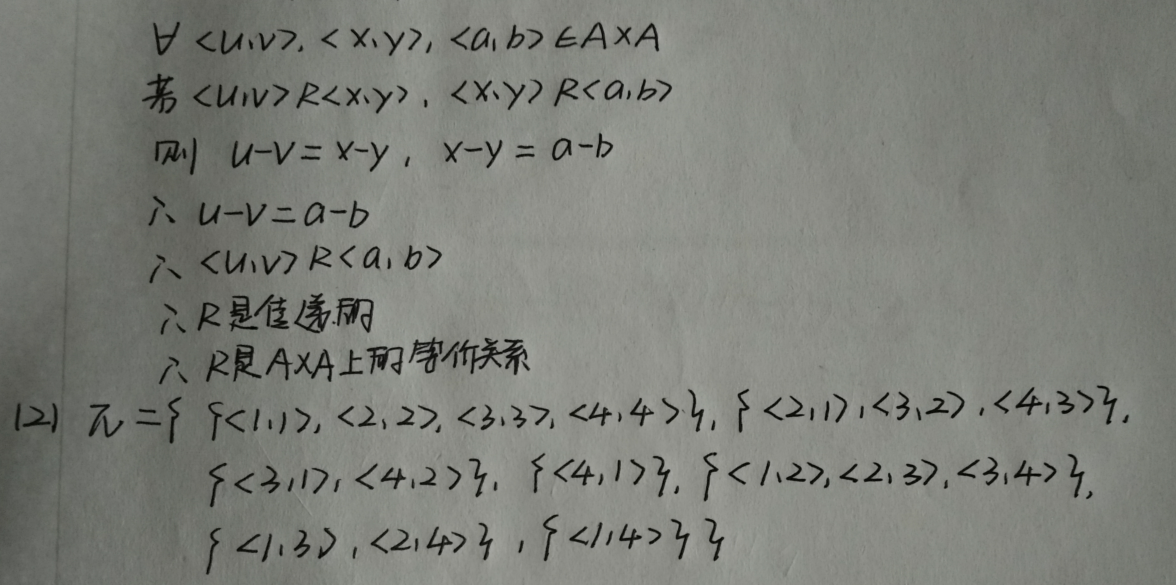 ∀ <u,v>, <x,y>, <a,b> ∈ A×A
若 <u,v> R <x,y>, <x,y> R <a,b>
则 u-v = x-y, x-y = a-b
∴ u-v = a-b
∴ <u,v> R <a,b>
∴ R是传递的
∴ R是A×A上的等价关系
(2) π = { {<1,1>, <2,2>, <3,3>, <4,4>}, {<2,1>, <3,2>, <4,3>},
{<3,1>, <4,2>}, {<4,1>}, {<1,2>, <2,3>, <3,4>},
{<1,3>, <2,4>}, {<1,4>} }